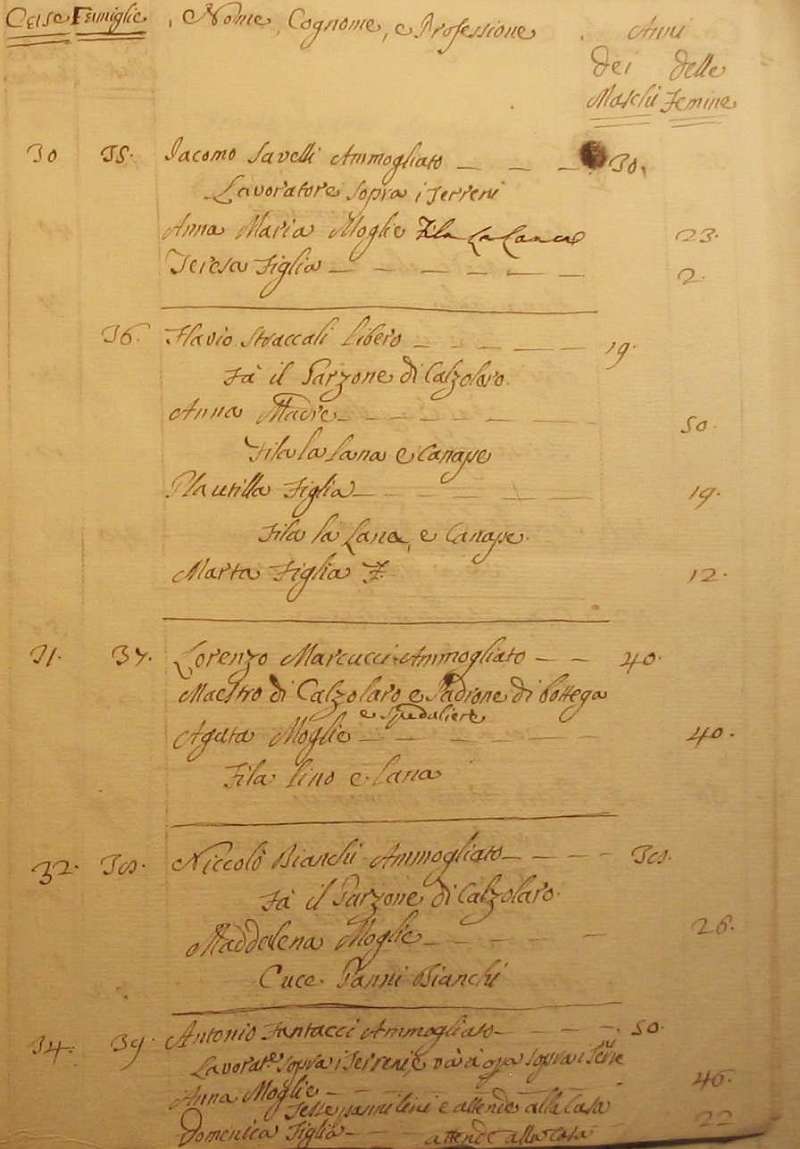 Case Famiglie, Nome, Cognome, e Professione Anni
dei delle
Maschi Femine
30 35. Iacomo Savelli Ammogliato 30.
Lavoratore sopra i Terreni
Anna Maria Moglie Fila La Lana e 23.
Teresa Figlia 2.
36. Flavio Straccali Libero 19.
Fà il Garzone di Calzolaro.
Anna Madre 50.
Fila la lana e Canape
Plautilla Figlia 19.
Fila la Lana, e Canape.
Marta Figlia 12.
31. 37. Lorenzo Marcucci Ammogliato 40.
Maestro di Calzolaro e Padrone di bottega
e Spedaliere
Agata Moglie 40.
Fila lino e lana
32. 38. Niccolò Bianchi Ammogliato 38.
Fà il Garzone di Calzolaro.
Maddelena Moglie 26.
Cuce Panni Bianchi
34. 39. Antonio Fantacci Ammogliato 50.
Lavorat.e sopra i Terreni, e và a opa sopra i Terre
Anna Moglie 46.
Tesse panni lini e attende alla Casa
Domenica Figlia attende alla Casa 22